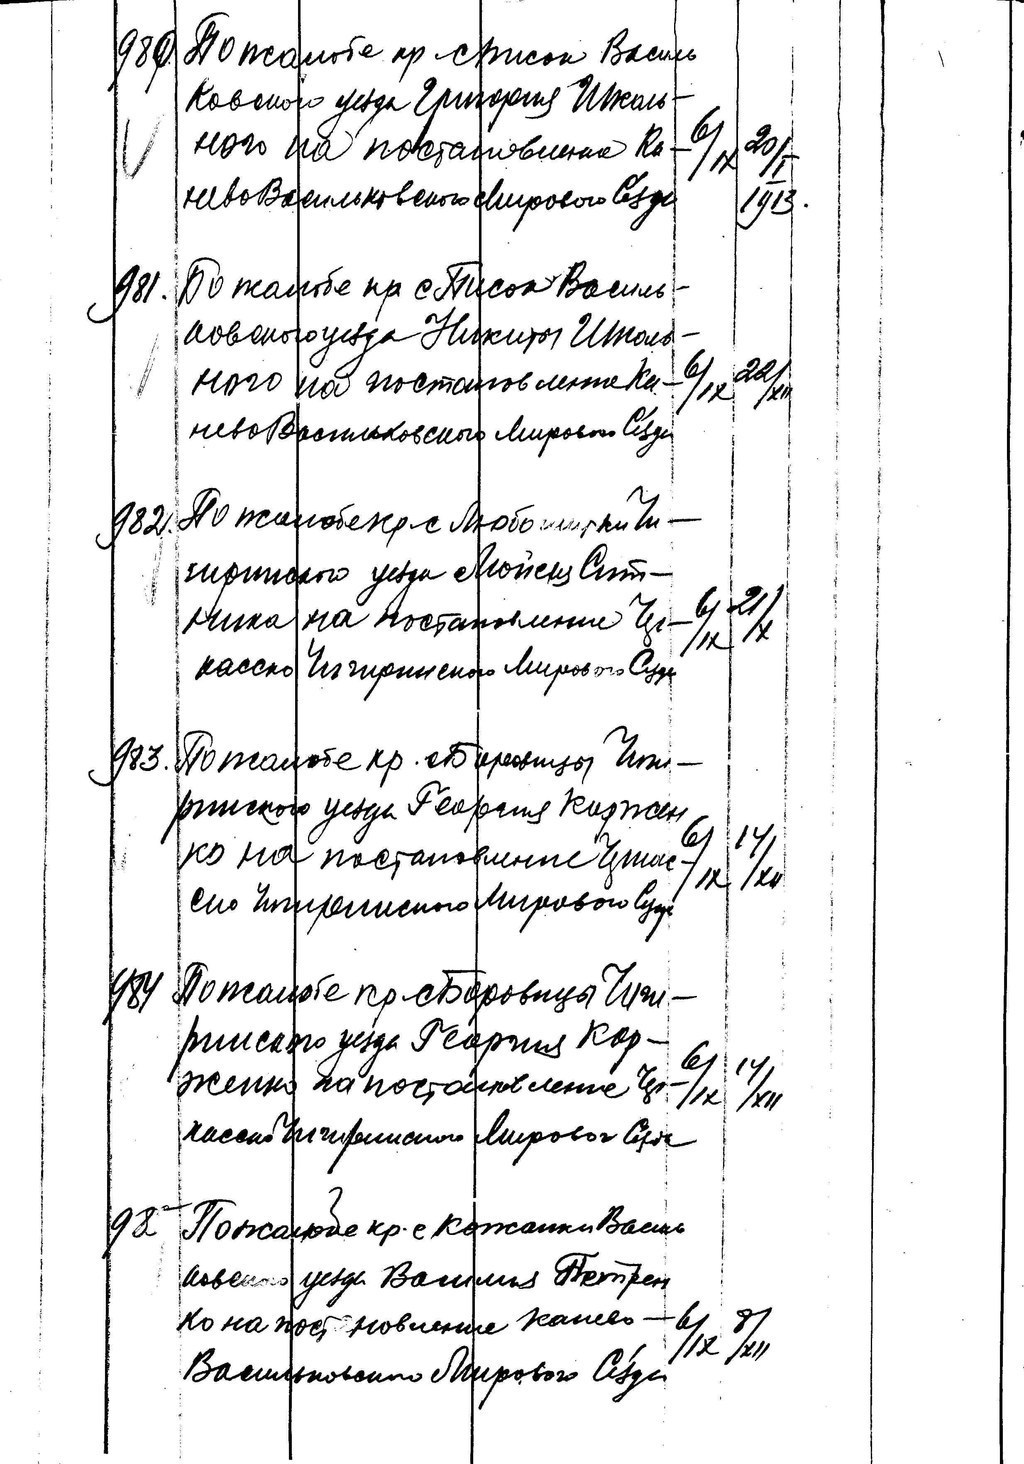 980. По жалобе кр. с Писок Василь
ковского уезда Григория Школь-
ного на постановление Ка- 6/IX 20/I
невоВасильковского Мирового Сезда 1913.
981. По жалобе кр с Писок Василь-
ковского уезда Никиты Школь-
ного на постановление Ка- 6/IX 22/XII
невоВасильковского Мирового Сезда
982. По жалобе кр с Чи-
гиринского уезда Мойсея Сит-
ника на постановление Чер- 6/IX 21/X
касско Чигиринского Мирового Сезда
983. По жалобе кр. с Боровицы Чиги-
ринского уезда Георгия Коржен
ко на постановление Черкас- 6/IX 14/XII
ско Чигиринского Мирового Сезда
984 По жалобе кр с Боровицы Чиги-
ринского уезда Георгия Кор-
женко на постановление Чер- 6/IX 14/XII
касско Чигиринского Мирового Сезда
98 По жалобе кр. с Кожанки Василь
ковского уезда Василия Петрен
ко на постановление Канево- 6/IX 8/XII
Васильковского Мирового Сезда